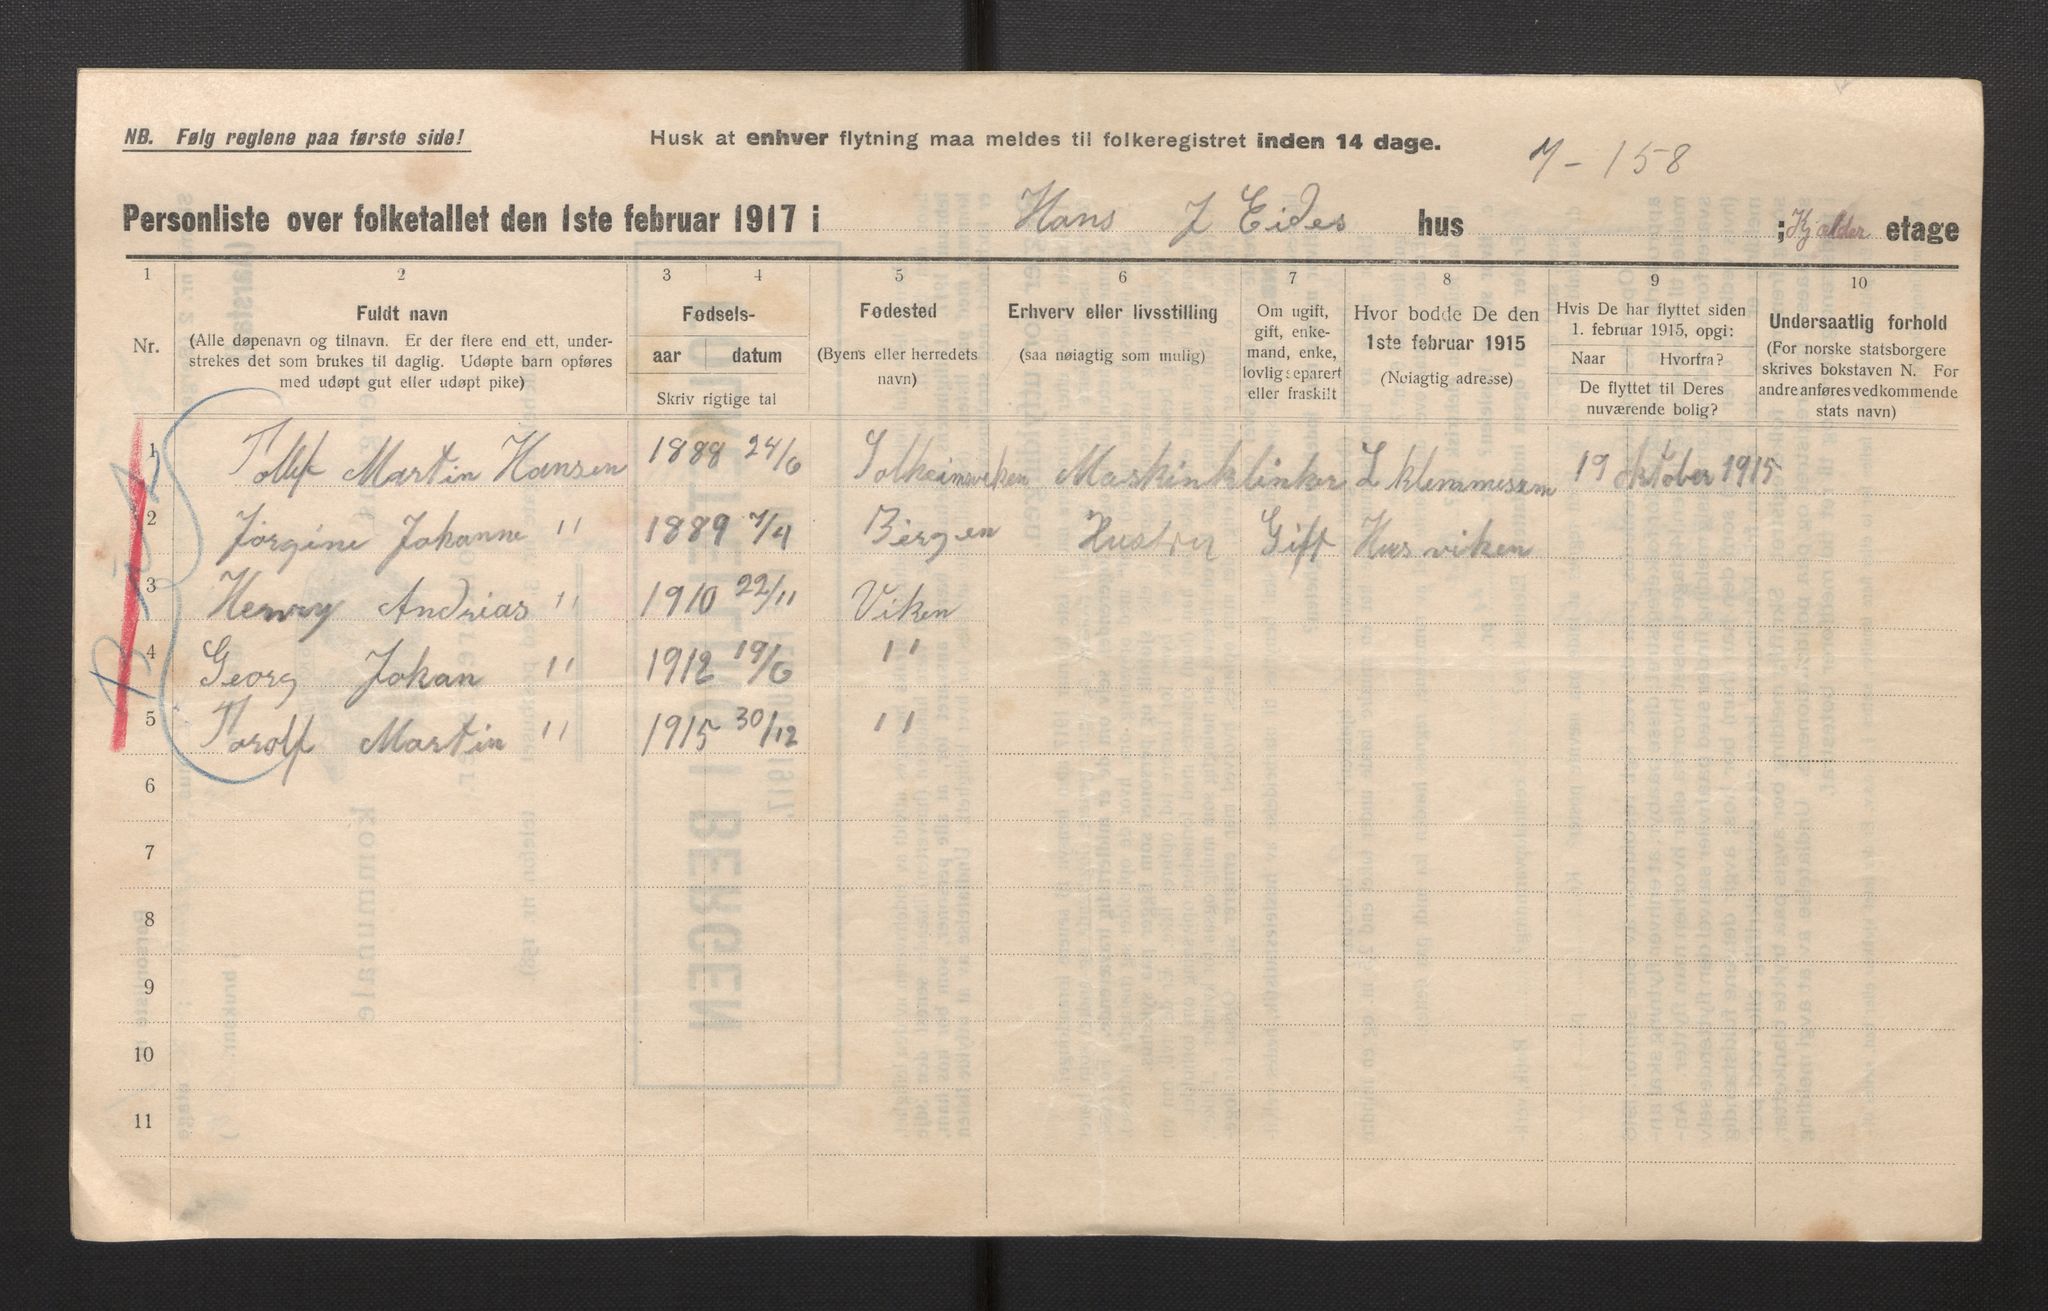 NB. Følg reglene paa første side!
Husk at enhver flytning maa meldes til folkeregistret inden 14 dage.
7-158
Personliste over folketallet den 1ste februar 1917 i Hans J Eides hus ; Kjælder etage
1 2 3 4 5 6 7 8 9 10
Nr.
Fuldt navn
(Alle døpenavn og tilnavn. Er der flere end ett, under-
strekes det som brukes til daglig. Udøpte barn opføres
med udøpt gut eller udøpt pike)
Fødsels-
aar datum
Skriv rigtige tal
Fødested
(Byens eller herredets
navn)
Erhverv eller livsstilling
(saa nøiagtig som mulig)
Om ugift,
gift, enke-
mand, enke,
lovlig separert
eller fraskilt
Hvor bodde De den
1ste februar 1915
(Nøiagtig adresse)
Hvis De har flyttet siden
1. februar 1915, opgi:
Naar Hvorfra?
De flyttet til Deres
nuværende bolig?
Undersaatlig forhold
(For norske statsborgere
skrives bokstaven N. For
andre anføres vedkommende
stats navn)
1 Tollef Martin Hansen 1888 24/6 Solheimsviken Maskinklinker L Klemmesem 19 oktober 1915
2 Jørgine Johanne " 1889 7/4 Bergen Hustru Gift Hus viken
3 Henry Andrias " 1910 22/11 Viken
4 Georg Johan " 1912 19/6 "
5 Torolf Martin " 1915 30/12 "
6
7
8
9
10
11